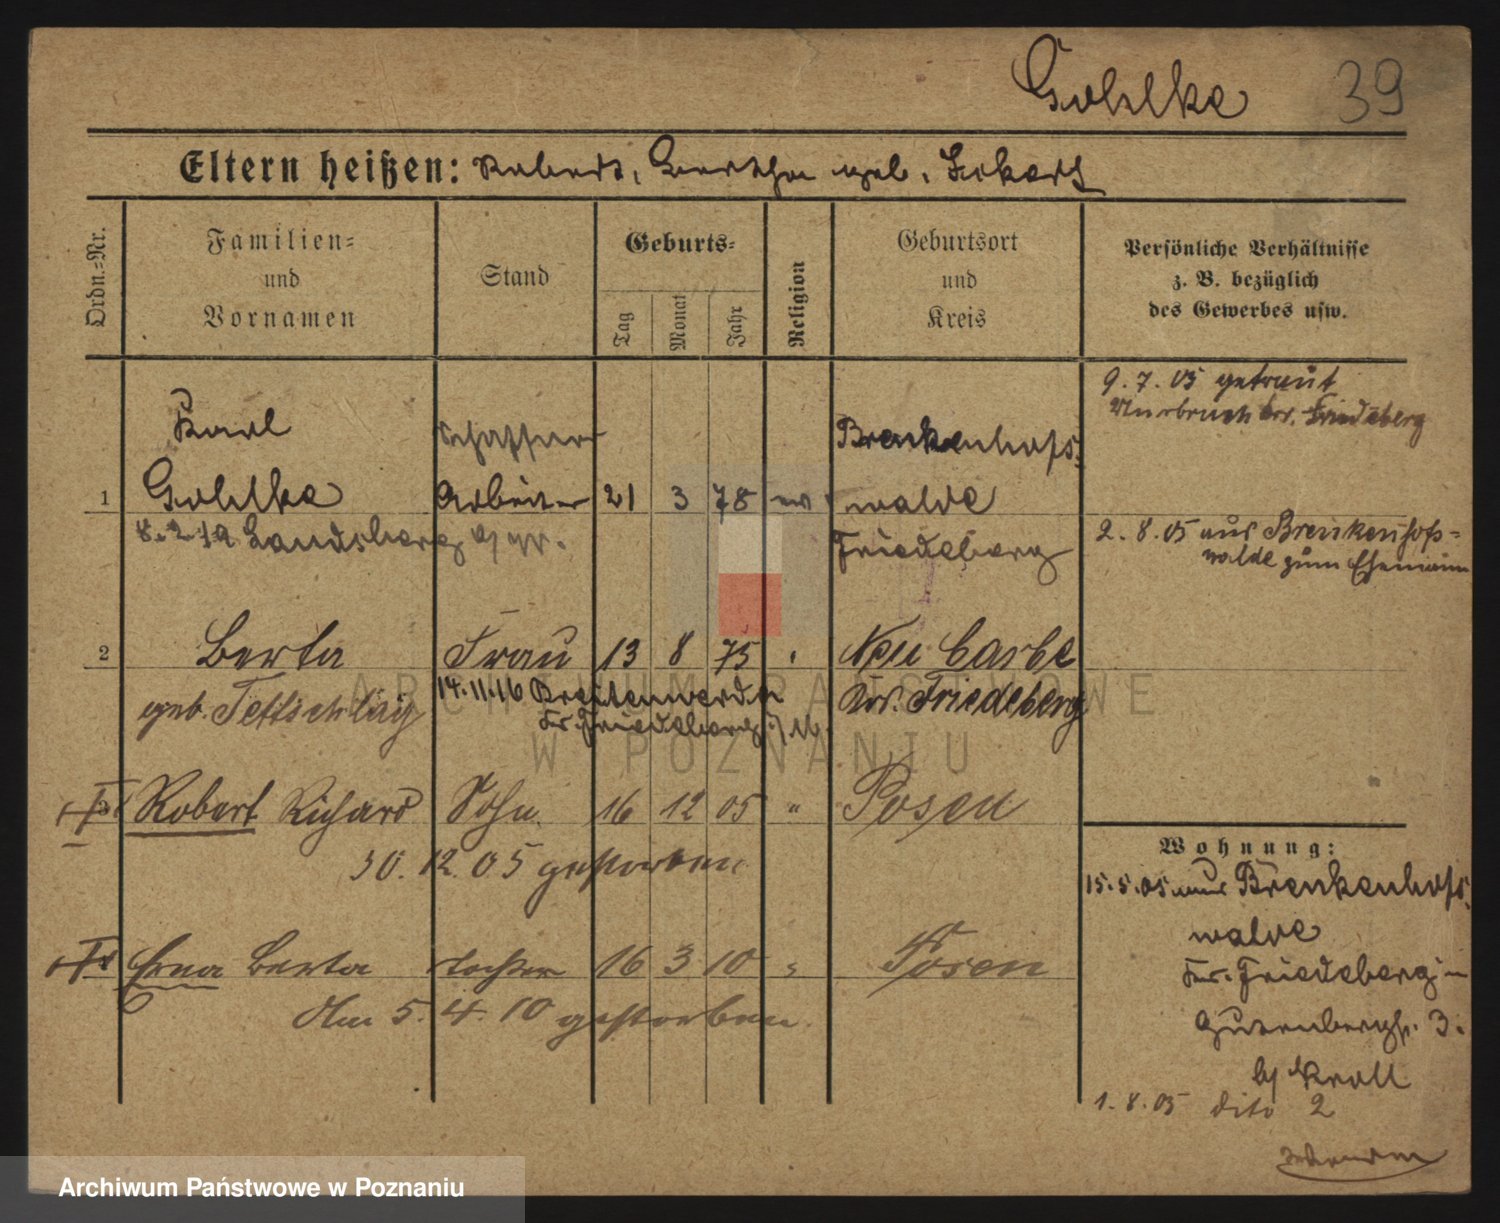 Gohlke 39
Eltern heißen: Robert, Bertha geb. Eckert
Ordn.=Nr.
Familien=
und
Vornamen
Stand
Geburts=
Tag
Monat
Jahr
Religion
Geburtsort
und
Kreis
Persönliche Verhältnisse
z. B. bezüglich
des Gewerbes usw.
9. 7. 05 getraut
Kr. Friedeberg
Karl Schaffner Brenkenhofs
1 Gohlke Arbeiter 21 3 78 ev walde
8. 2. 19 Landsberg a/W. Friedeberg
2. 8. 05 aus Brenkenhofs=
walde zum Ehemann
2 Berta Frau 13 8 75 " Neu Carbe
geb. 14.11.16 Breitenwerder Kr. Friedeberg
Kr. Friedeberg N/M.
3 Robert Richard Sohn 16 12 05 " Posen
30. 12. 05 gestorben
Erna Berta Tochter 16 3 10 " Posen
Am 5. 4. 10 gestorben.
Wohnung:
15. 5. 05 aus Brenkenhofs
walde
Kr. Friedeberg
Gutenbergstr. 3.
b/ Kroll
1. 8. 05 dito 2
ARCHIWUM PAŃSTWOWE
W POZNANIU
Archiwum Państwowe w Poznaniu